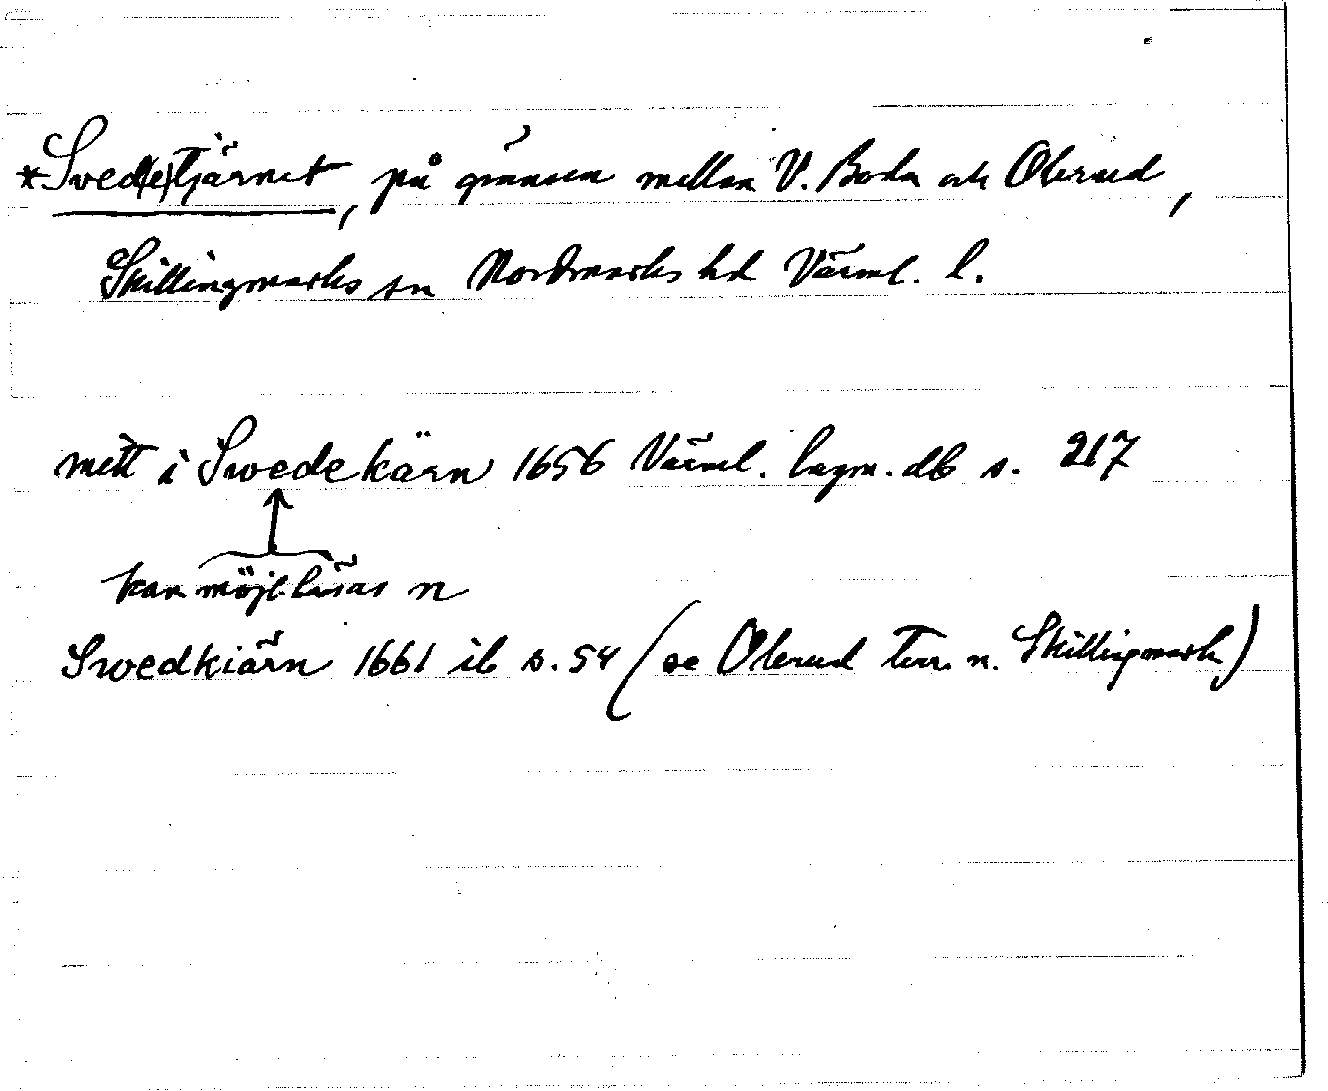 *Swed(e)tjärnet, på gränsen mellan V. Boda och Olerud,
Skillingmarks sn Nordmarks hd Värml. l.
mitt i Swedekärn 1656 Värml. lagm. db s. 217
kan möjl läsas n
Swedkiärn 1661 ib s. 54 (se Olerud terr. n. Skillingmark)